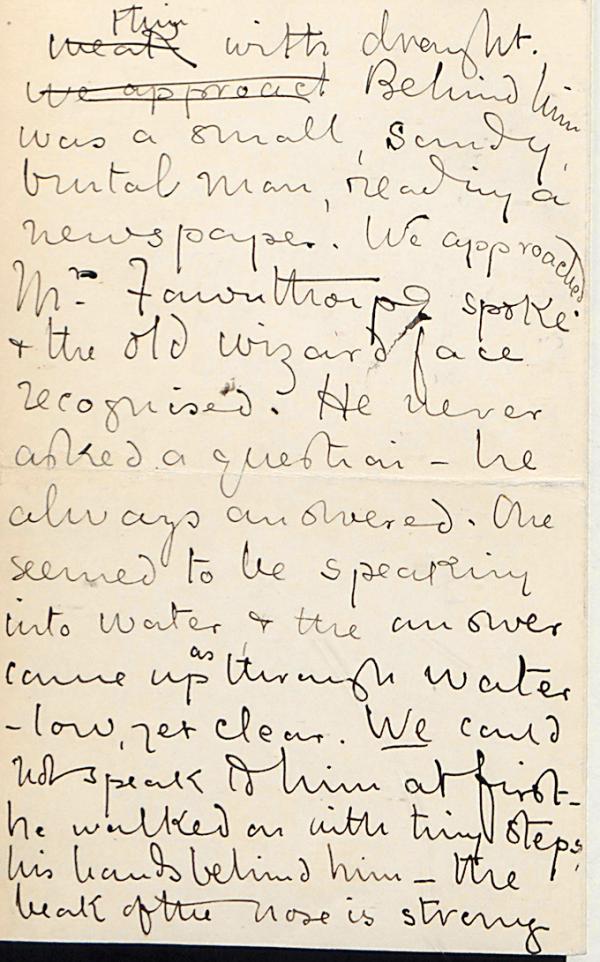 thin
weak with draught.
we approact Behind him
was a small, sandy,
brutal man, reading a
newspaper. We approached
Mr. Fawnthorpe spoke
& the old wizard face
recognised. He never
asked a question – he
always answered. One
seemed to be speaking
into water, & the answer
came up as through water
– low, yet clear. We could
not speak to him at first –
he walked on with tiny steps,
his hands behind him – the
beak of the nose is strong